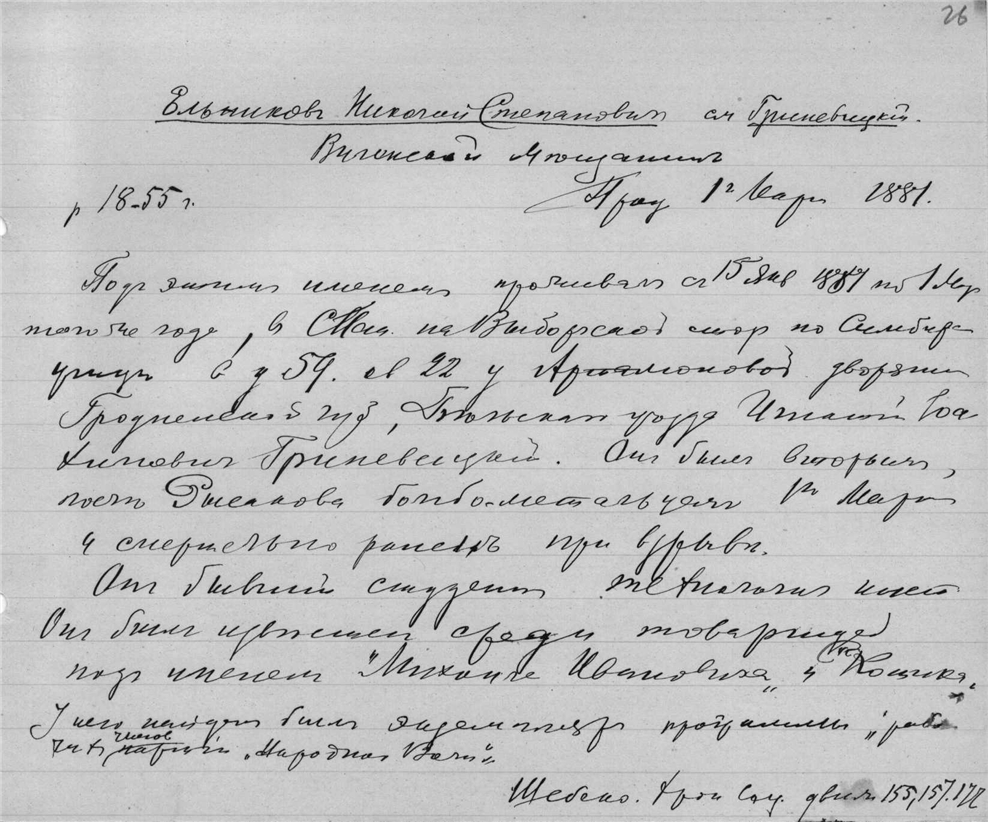 26
Ельниковъ Николай Степановичъ см Гриневицкій.
Виленскій Мѣщанинъ
р 18-55 г.
1го Март 1881.
Подъ этимъ именемъ проживалъ съ 15 Янв 1881 по 1 Мар
того же года, в на Выборгской стор по Симбирс
улицѣ в д 59. кв 22 у Артамоновой дворянин
Гродненской губ, Бѣльскаго уѣзда Игнатій Іоа
химовичъ Гриневицкій. Онъ былъ вторымъ,
послѣ Рысакова бомбометальщикъ 1го Март
и смертельно раненъ при взрывѣ.
Онъ бывшій студентъ технологич инст
Онъ былъ извѣстен среди товарищей
подъ именемъ "Михаила Ивановича" и Котика"
У него найденъ былъ экземпляръ программы "рабо
чихъ членов партіи "Народная Воля".
Шебеко. Хрон Соц. движ. 155, 157.